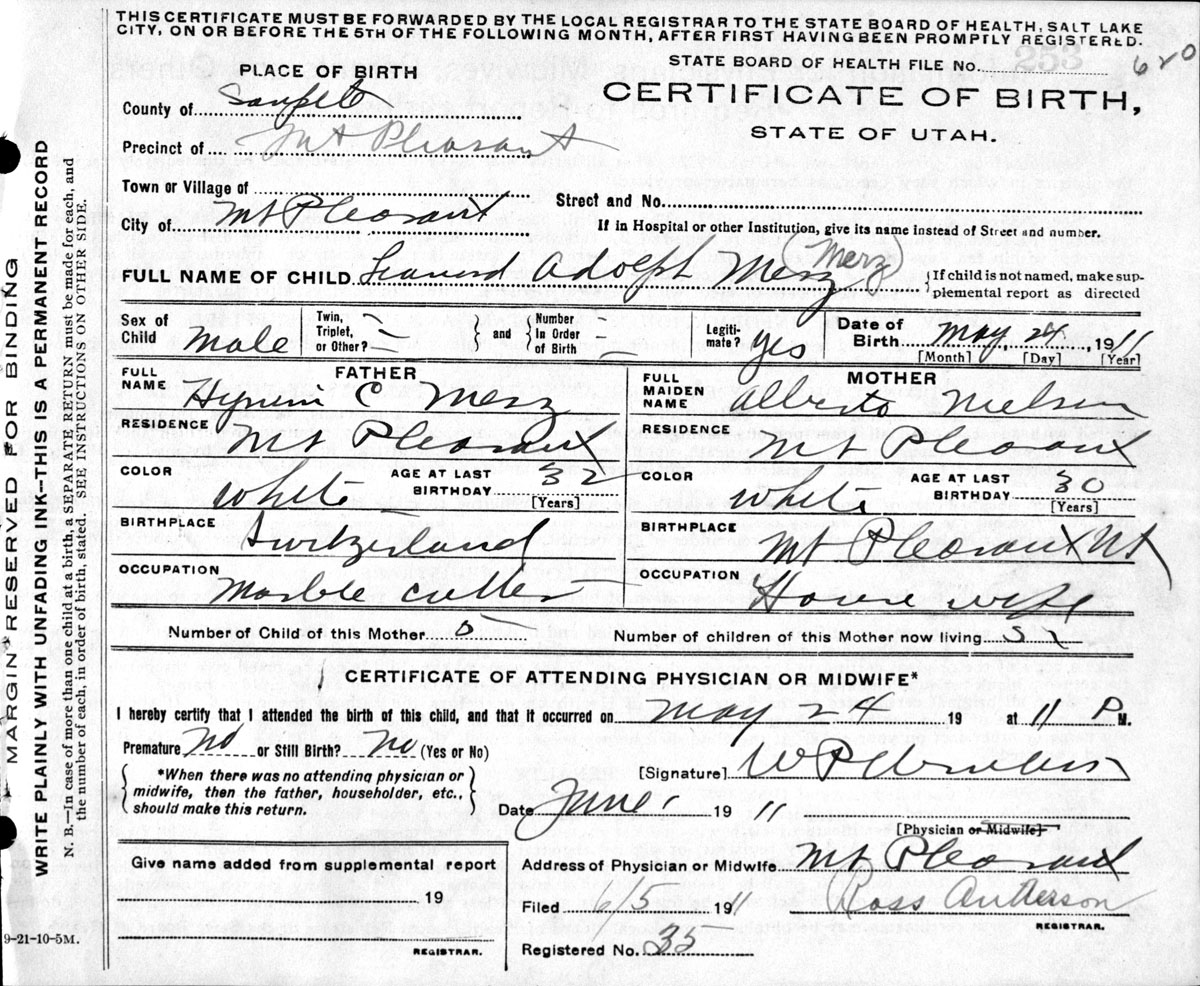 THIS CERTIFICATE MUST BE FORWARDED BY THE LOCAL REGISTRAR TO THE STATE BOARD OF HEALTH, SALT LAKE
CITY, ON OR BEFORE THE 5TH OF THE FOLLOWING MONTH, AFTER FIRST HAVING BEEN PROMPTLY REGISTERED.
STATE BOARD OF HEALTH FILE NO. 253 620
PLACE OF BIRTH
CERTIFICATE OF BIRTH,
STATE OF UTAH.
County of Sanpete
Precinct of Mt Pleasant
Town or Village of
Street and No.
City of Mt Pleasant
If in Hospital or other Institution, give its name instead of Street and number.
FULL NAME OF CHILD Leanord Adolph Merz Merz
{If child is not named, make sup-
plemental report as directed
Sex of Child Male
Twin, Triplet, or Other? —
and
Number In Order of Birth —
Legiti-mate? yes
Date of Birth May 24, 1911
[Month] [Day] [Year]
FATHER
FULL NAME Hyrum C Merz
RESIDENCE Mt Pleasant
COLOR White
AGE AT LAST BIRTHDAY 32
[Years]
BIRTHPLACE Switzerland
OCCUPATION Marble cutter
MOTHER
FULL MAIDEN NAME Alberta Nielsen
RESIDENCE Mt Pleasant
COLOR White
AGE AT LAST BIRTHDAY 30
[Years]
BIRTHPLACE Mt Pleasant Ut
OCCUPATION House wife
Number of Child of this Mother 5
Number of children of this Mother now living 5
CERTIFICATE OF ATTENDING PHYSICIAN OR MIDWIFE*
I hereby certify that I attended the birth of this child, and that it occurred on May 24 19 at 11 P M.
Premature No or Still Birth? No (Yes or No)
{*When there was no attending physician or
midwife, then the father, householder, etc.,
should make this return.}
[Signature] W P
Date June 1 1911
[Physician or Midwife]
Give name added from supplemental report
19
REGISTRAR.
Address of Physician or Midwife Mt Pleasant
Filed 6/5 1911 Ross Anderson
REGISTRAR.
Registered No. 33
9-21-10-5M.
MARGIN RESERVED FOR BINDING
WRITE PLAINLY WITH UNFADING INK—THIS IS A PERMANENT RECORD
N. B.—In case of more than one child at a birth, a SEPARATE RETURN must be made for each, and
the number of each, in order of birth, stated. SEE INSTRUCTIONS ON OTHER SIDE.